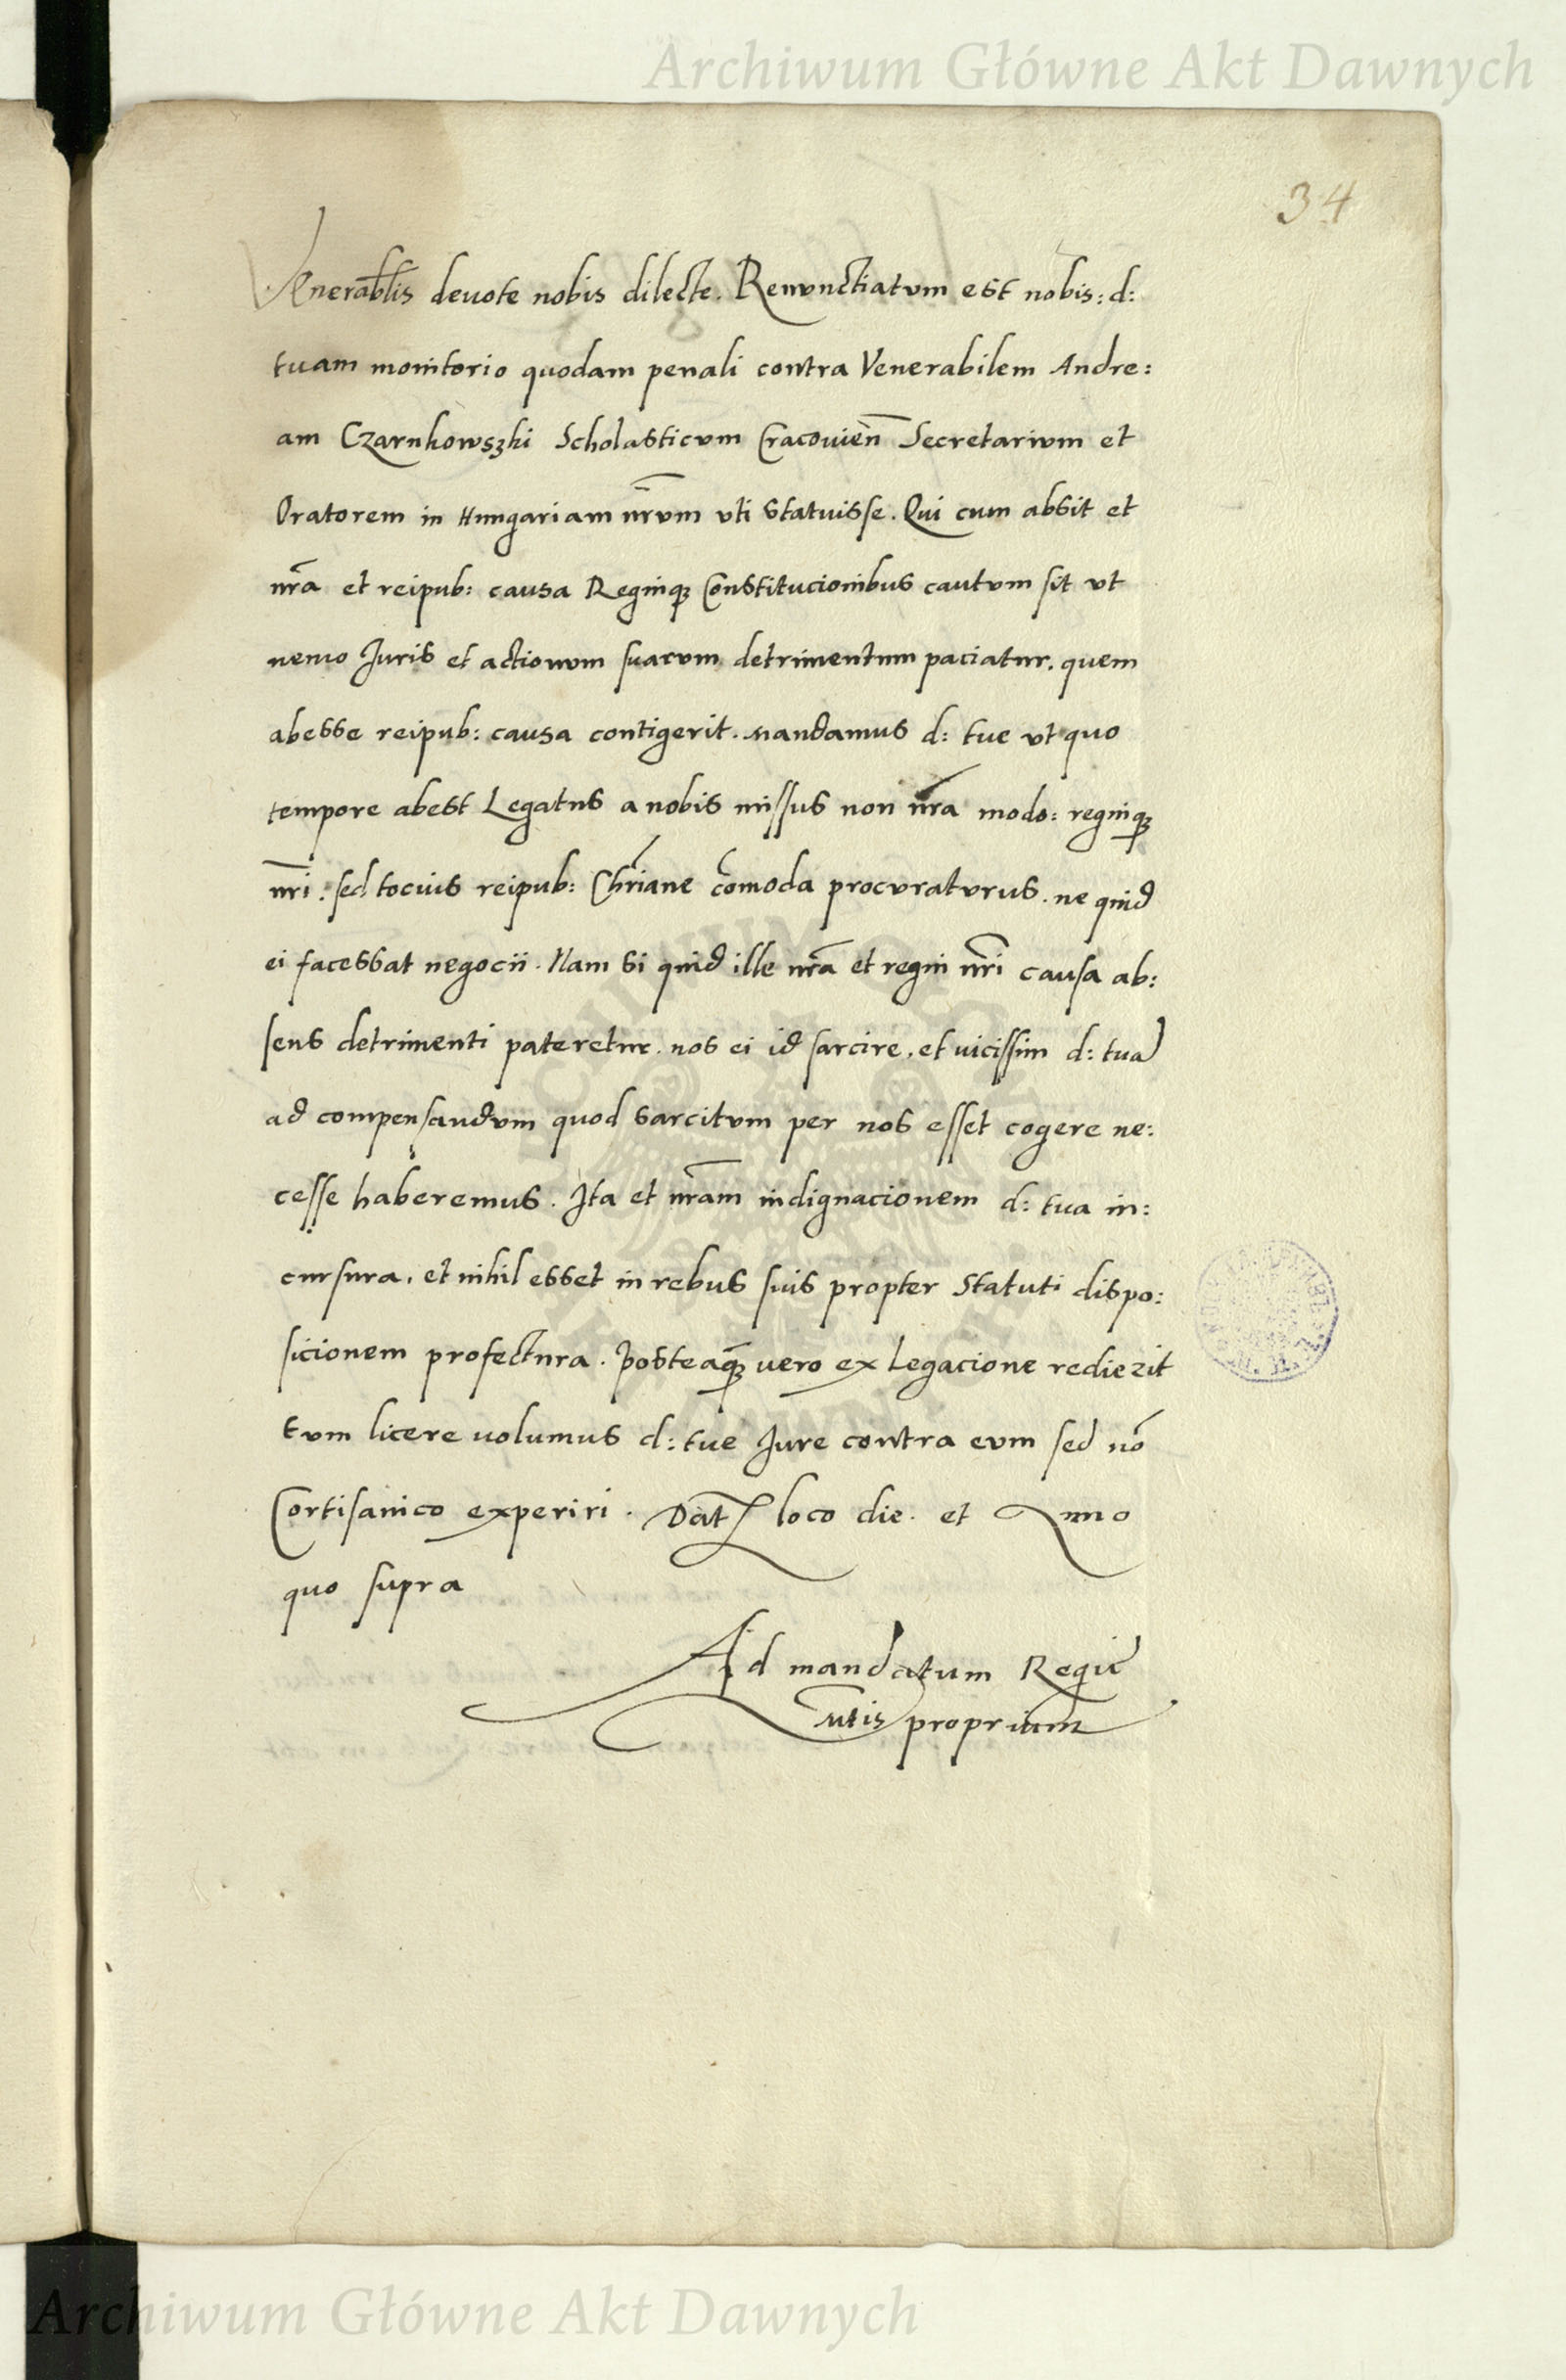 Archiwum Główne Akt Dawnych
34
Venerabl̅is deuote nobis dilecte. Renunctiatum est nobis: d:
tuam monitorio quodam penali contra Venerabilem Andre:
am Czarnkowszki Scholasticum Cracouien̅ Secretarium et
Oratorem in Hungariam nr̅um vti statuisse. Qui cum absit et
nr̅a et reipub: causa Regniqꝫ Constitucionibus cautum sit vt
nemo Juris et actionum suarum detrimentum paciatur. quem
abesse reipub: causa contigerit. mandamus d: tue vt quo
tempore abest Legatus a nobis missus non nr̅a modo: regniqꝫ
nr̅i: sed tocius reipub: Chr̅iane co̅moda procuraturus. ne quid
ei facessat negocii. Nam si quid ille nr̅a et regni nr̅i causa ab:
sens detrimenti pateretur. nos ei id sarcire, et uicissim d: tua
ad compensandum quod sarcitum per nos esset cogere ne:
cesse haberemus. Ita et nr̅am indignacionem d: tua in:
cursura, et nihil esset in rebus suis propter Statuti dispo:
sicionem profectura. Posteaqꝫ̅ uero ex Legacione redierit
tum licere volumus d: tue Jure contra eum sed no̅
Cortisanico experiri. Dat loco die. et Anno
quo supra
Ad mandatum Regie
Mtis proprium
Archiwum Główne Akt Dawnych